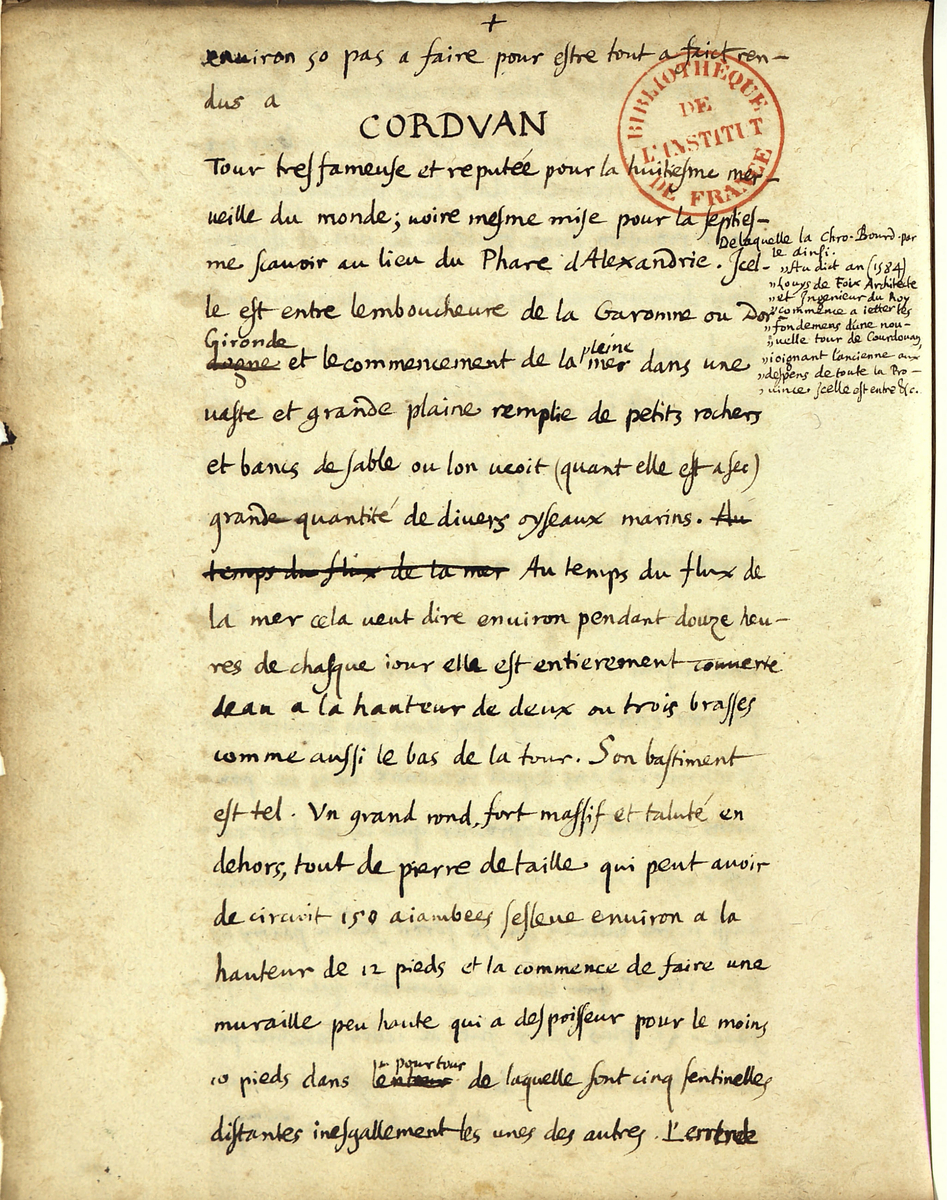 +
environ 50 pas a faire pour estre tout a faict ren-
dus a
CORDVAN
BIBLIOTHÈQUE
DE
L'INSTITUT
DE FRANCE
Tour tresfameuse et reputée pour la huitiesme mer-
veille du monde; voire mesme mise pour la septies-
me scavoir au lieu du Phare d'Alexandrie. Icel-
Delaquelle la Chro. Bourd. par
le ainsi.
"Au dict an (1584)
"Louys de Foix Architecte
"et Ingenieur du Roy
"commence a ietter les
"fondemens d'une nou-
"uelle tour de Courdouan,
"ioignant l'ancienne aux
"despens de toute la Pro-
"uince Icelle est entre &c.
le est entre lemboucheure de la Garomne ou Dor
Gironde
dogne et le commencement de la pleine mer dans une
vaste et grande plaine remplie de petits rochers
et bancs de sable ou lon veoit (quant elle est a sec)
grande quantité de divers oyseaux marins. Au
temps du flux de la mer Au temps du flux de
la mer cela veut dire environ pendant douze heu-
res de chasque iour elle est entierement couverte
deau a la hauteur de deux ou trois brasses
comme aussi le bas de la tour. Son bastiment
est tel. Un grand rond, fort massif et taluté en
dehors, tout de pierre de taille qui peut avoir
de circuit 150 aiambees sesleue environ a la
hauteur de 12 pieds et la commence de faire une
muraille peu haute qui a despoisseur pour le moins
pourtour
10 pieds dans le de laquelle sont cinq sentinelles
distantes inesgallement les unes des autres. L'entrée